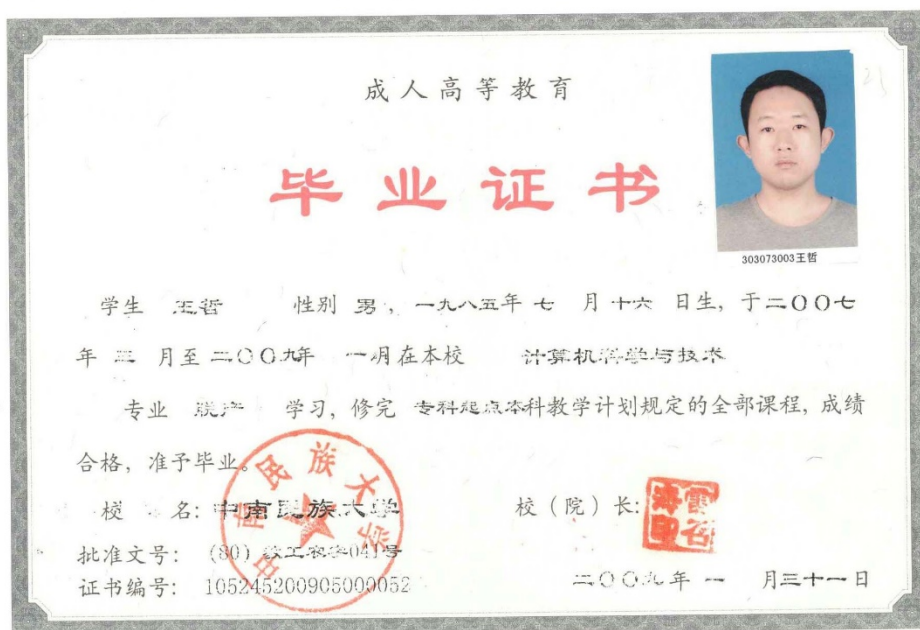 成人高等教育
毕业证书
303073003王哲
学生 王哲 性别 男，一九八五年 七 月 十六 日生，于二〇〇七
年 三 月至 二〇〇九年 一月在本校 计算机科学与技术
专业 脱产 学习，修完 专科起点本科教学计划规定的全部课程，成绩
合格，准予毕业。
校 名：中南民族大学
校（院）长：
批准文号：（80）教工农字041号
证书编号：105245200905000052
二〇〇九年 一 月三十一日
中南民族大学